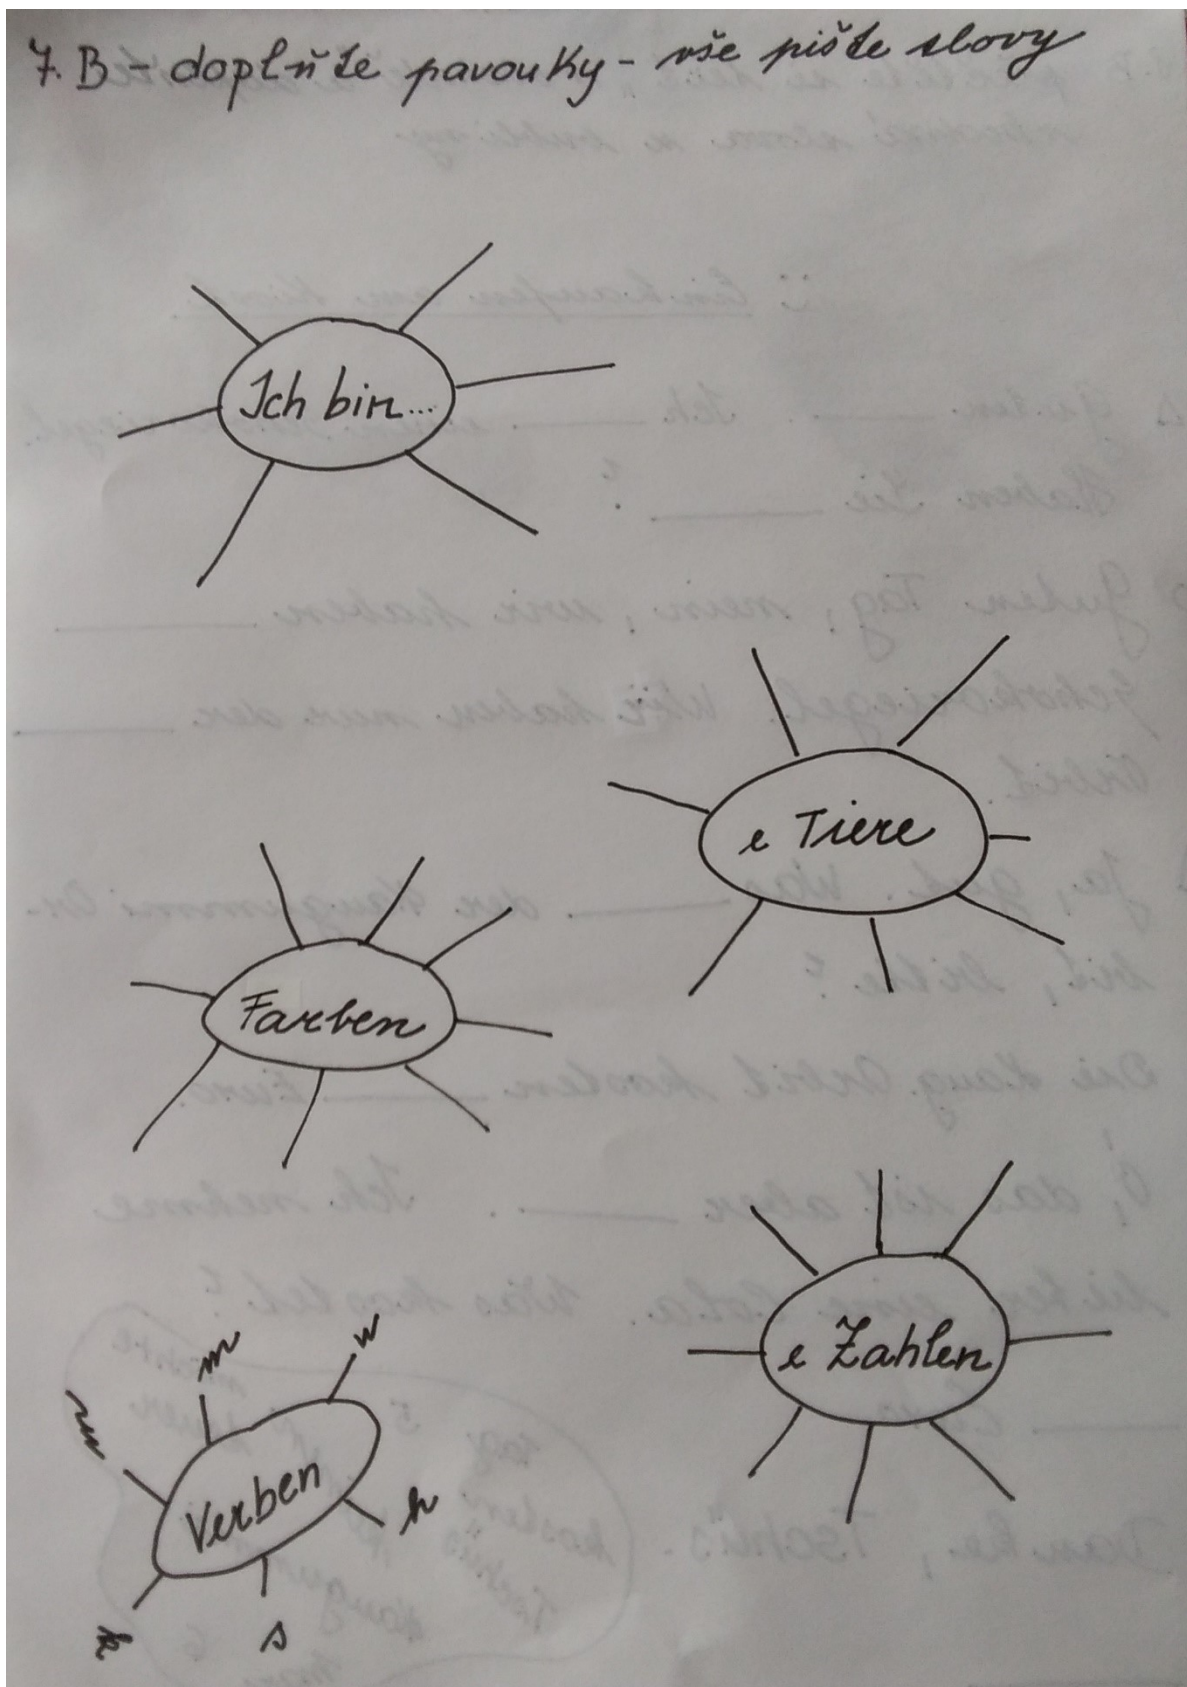 7. B - doplňte pavouky - vše pište slovy
Ich bin...
e Tiere
Farben
e Zahlen
Verben
m
w
h
s
k